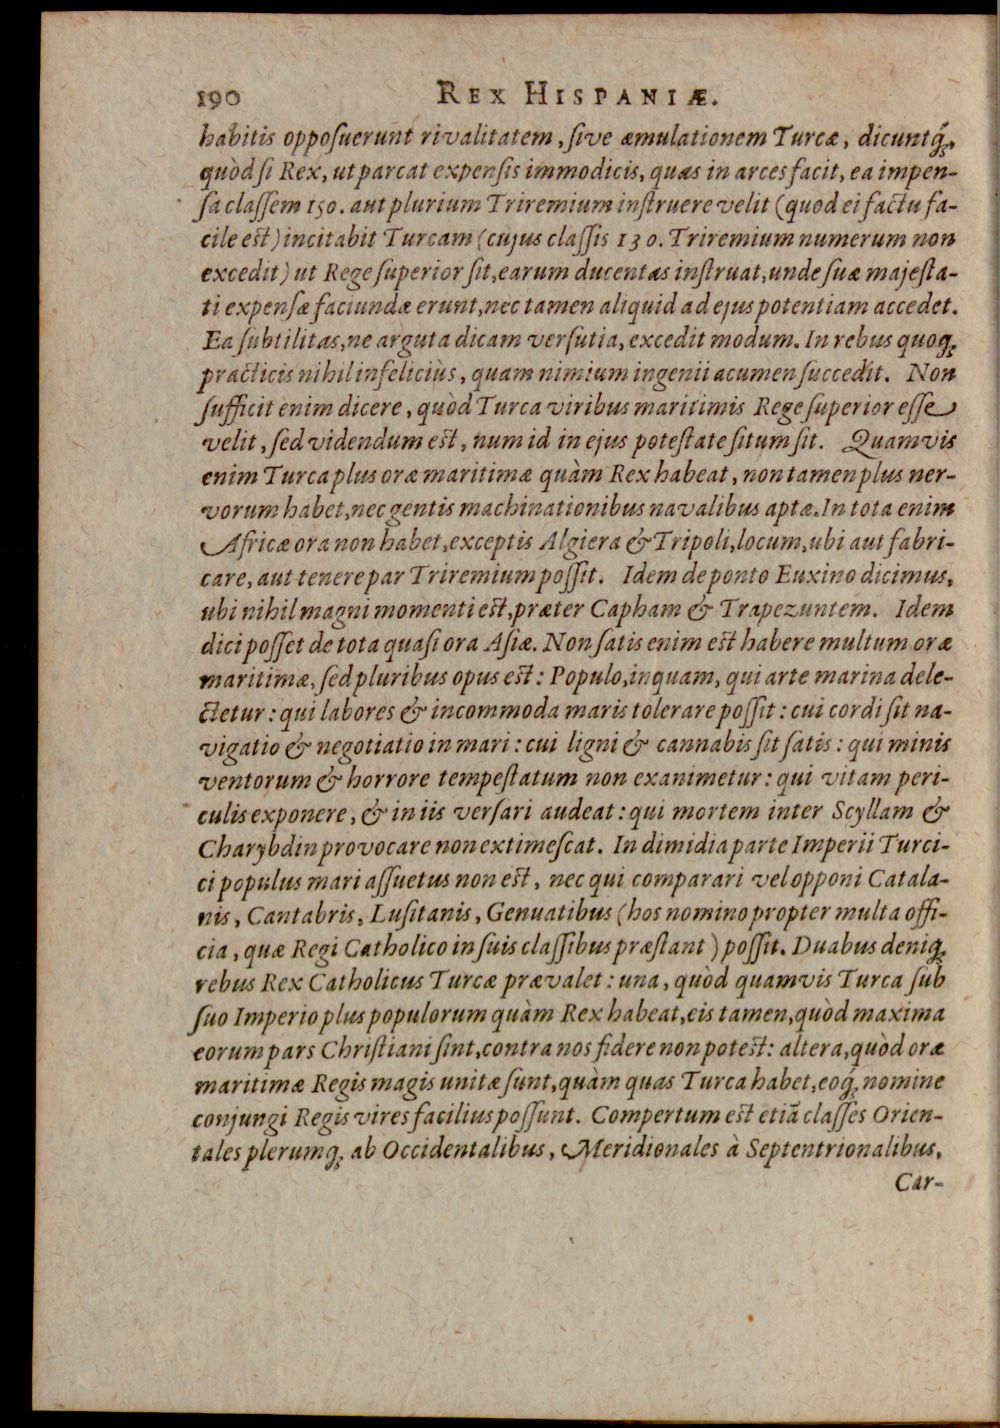 190 REX HISPANIÆ.
habitis opposuerunt rivalitatem, sive æmulationem Turcæ, dicuntq́;
quòd si Rex, ut parcat expensis immodicis, quas in arces facit, ea impen-
sa classem 150. aut plurium Triremium instruere velit (quod ei factu fa-
cile est) incitabit Turcam (cujus classis 130. Triremium numerum non
excedit) ut Rege superior sit, earum ducentas instruat, unde suæ majesta-
ti expensæ faciundæ erunt, nec tamen aliquid ad ejus potentiam accedet.
Ea subtilitas, ne arguta dicam versutia, excedit modum. In rebus quoq;
practicis nihil infeliciùs, quam nimium ingenii acumen succedit. Non
sufficit enim dicere, quòd Turca viribus maritimis Rege superior esse
velit, sed videndum est, num id in ejus potestate situm sit. Quamvis
enim Turca plus oræ maritimæ quàm Rex habeat, non tamen plus ner-
vorum habet, nec gentis machinationibus navalibus aptæ. In tota enim
Africæ ora non habet, exceptis Algiera & Tripoli, locum, ubi aut fabri-
care, aut tenere par Triremium possit. Idem de ponto Euxino dicimus,
ubi nihil magni momenti est, præter Capham & Trapezuntem. Idem
dici posset de tota quasi ora Asiæ. Non satis enim est habere multum oræ
maritimæ, sed pluribus opus est: Populo, inquam, qui arte marina dele-
ctetur: qui labores & incommoda maris tolerare possit: cui cordi sit na-
vigatio & negotiatio in mari: cui ligni & cannabis sit satis: qui minis
ventorum & horrore tempestatum non exanimetur: qui vitam peri-
culis exponere, & in iis versari audeat: qui mortem inter Scyllam &
Charybdin provocare non extimescat. In dimidia parte Imperii Turci-
ci populus mari assuetus non est, nec qui comparari vel opponi Catala-
nis, Cantabris, Lusitanis, Genuatibus (hos nomino propter multa offi-
cia, quæ Regi Catholico in suis classibus præstant) possit. Duabus deniq;
rebus Rex Catholicus Turcæ prævalet: una, quòd quamvis Turca sub
suo Imperio plus populorum quàm Rex habeat, eis tamen, quòd maxima
eorum pars Christiani sint, contra nos fidere non potest: altera, quòd oræ
maritimæ Regis magis unitæ sunt, quàm quas Turca habet, eoq́; nomine
conjungi Regis vires facilius possunt. Compertum est etiã classes Orien-
tales plerumq; ab Occidentalibus, Meridionales à Septentrionalibus,
Car-